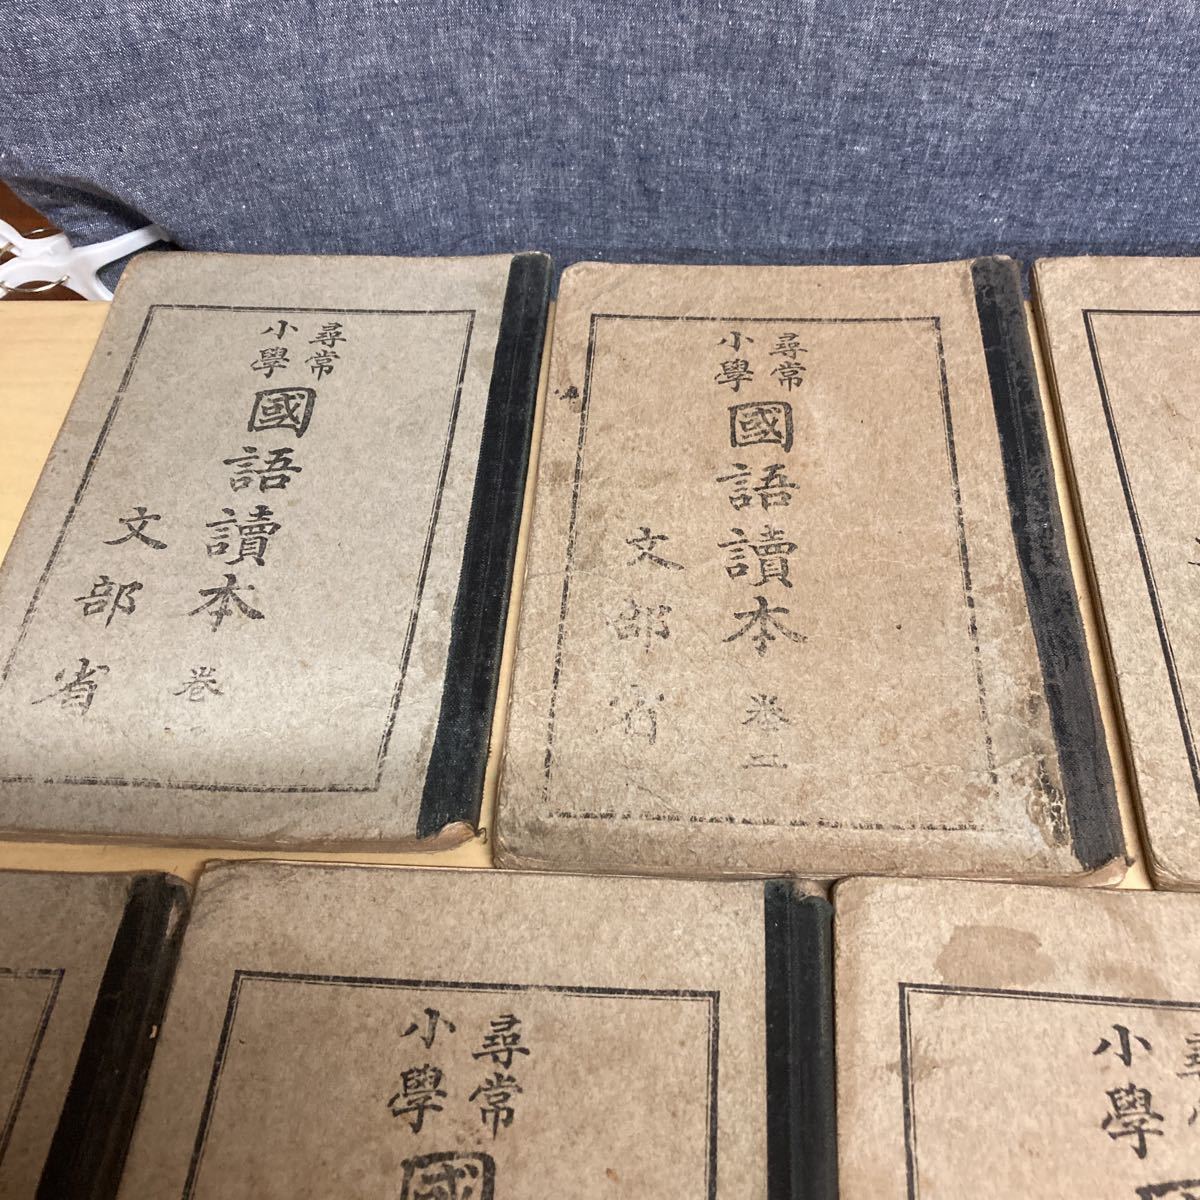 尋常
小學
國語讀本 卷一
文部省
尋常
小學
國語讀本 卷二
文部省
尋常
小學
國
尋常
小學